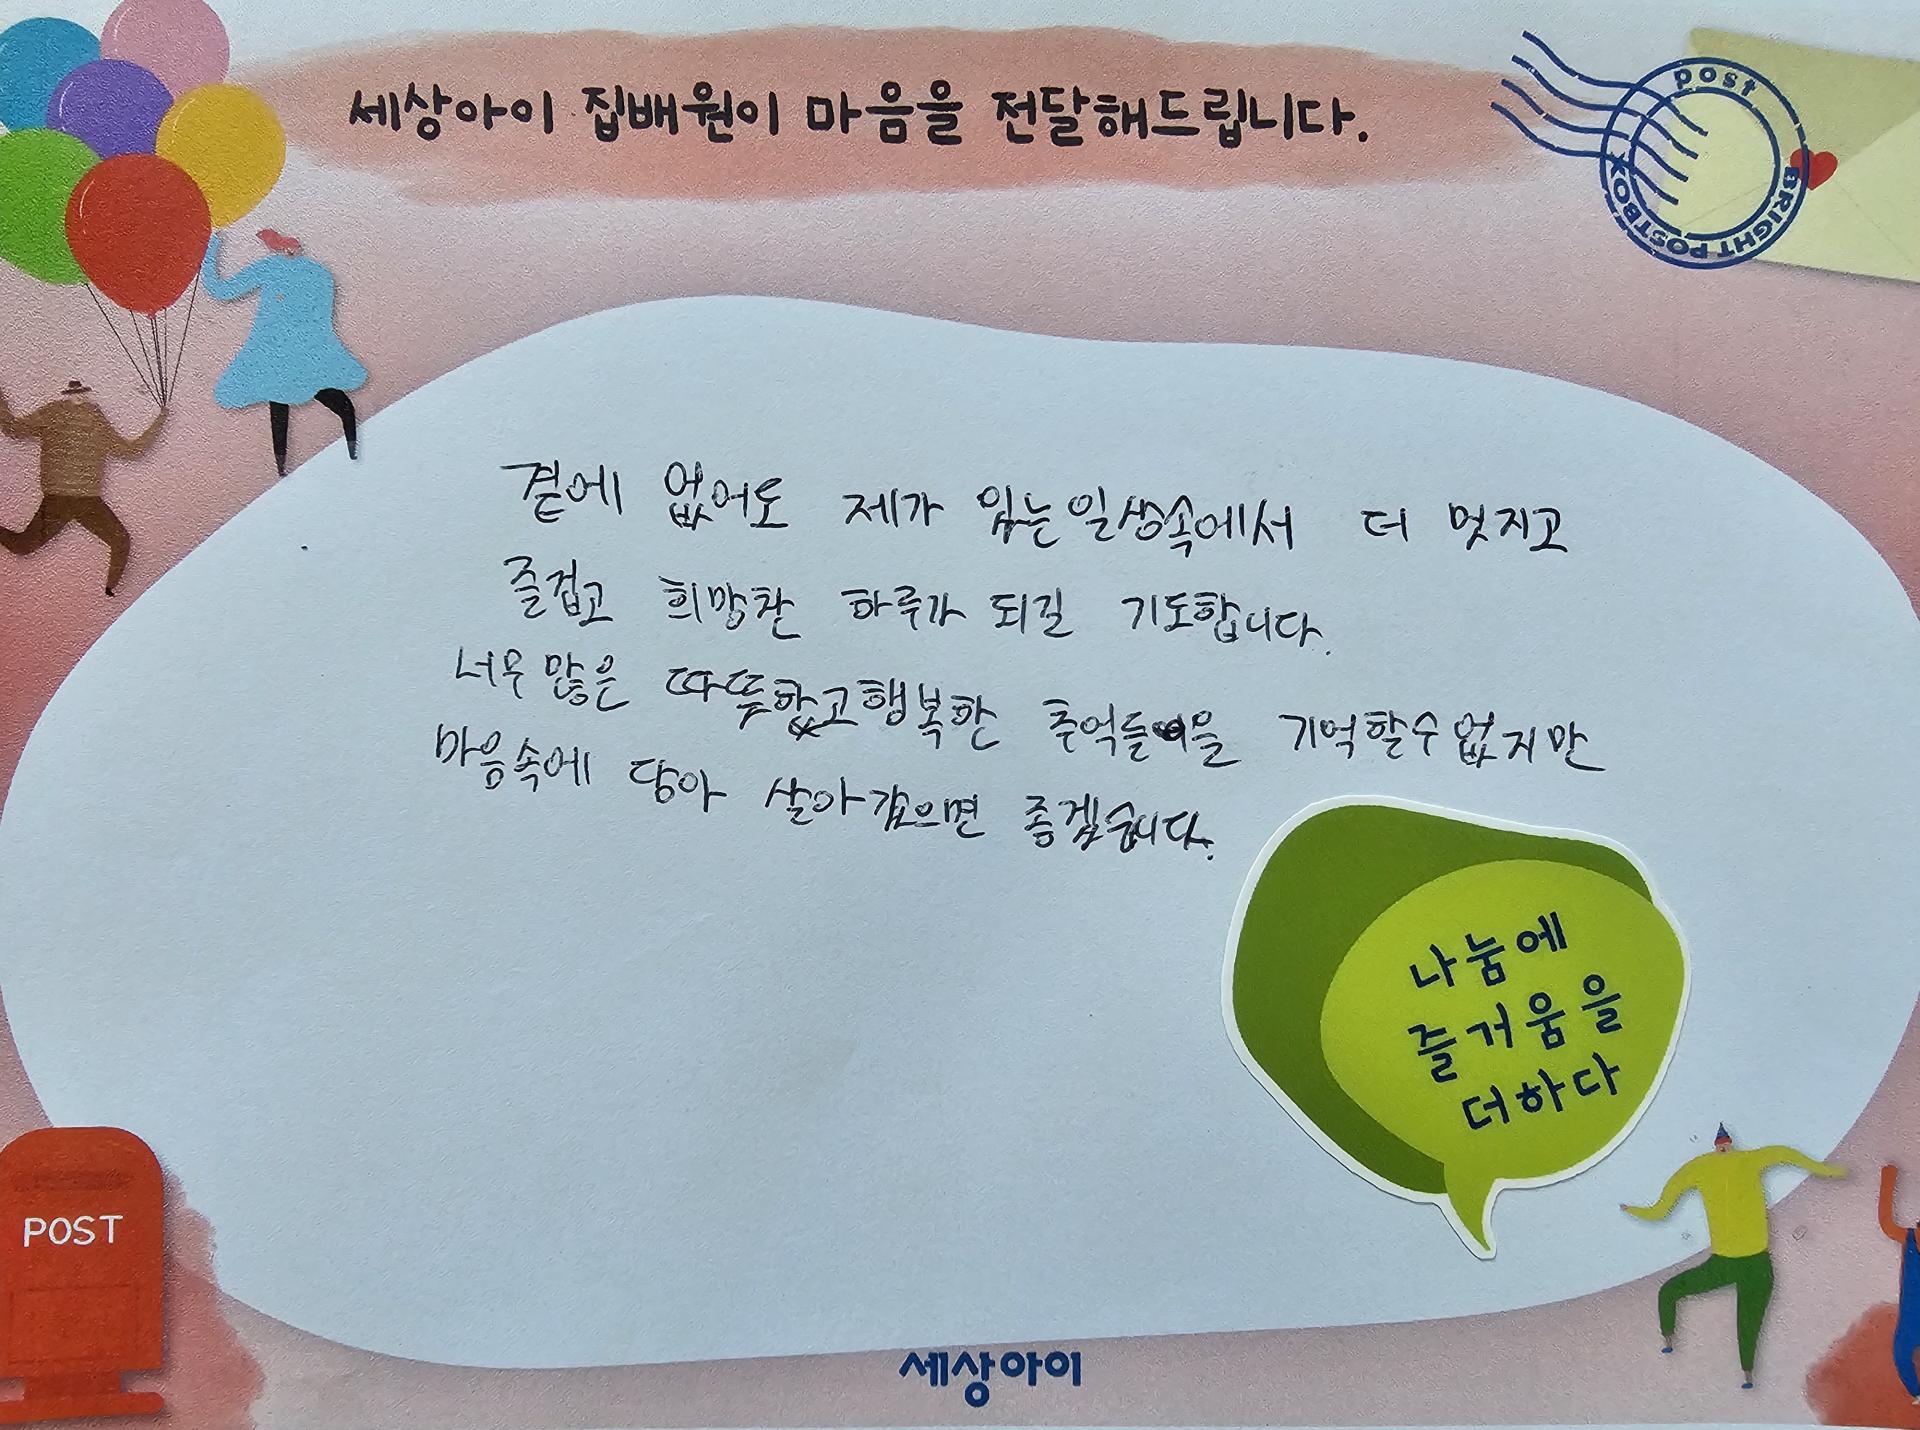 세상아이 집배원이 마음을 전달해드립니다.
post
BRIIGHT POSTBOX
곁에 없어도 제가 있는일상속에서 더 멋지고
즐겁고 희망찬 하루가 되길 기도합니다.
너무 많은 따뜻했고행복한 추억들을 기억할수없지만
마음속에 담아 살아갔으면 좋겠습니다.
나눔에
즐거움을
더하다
POST
세상아이